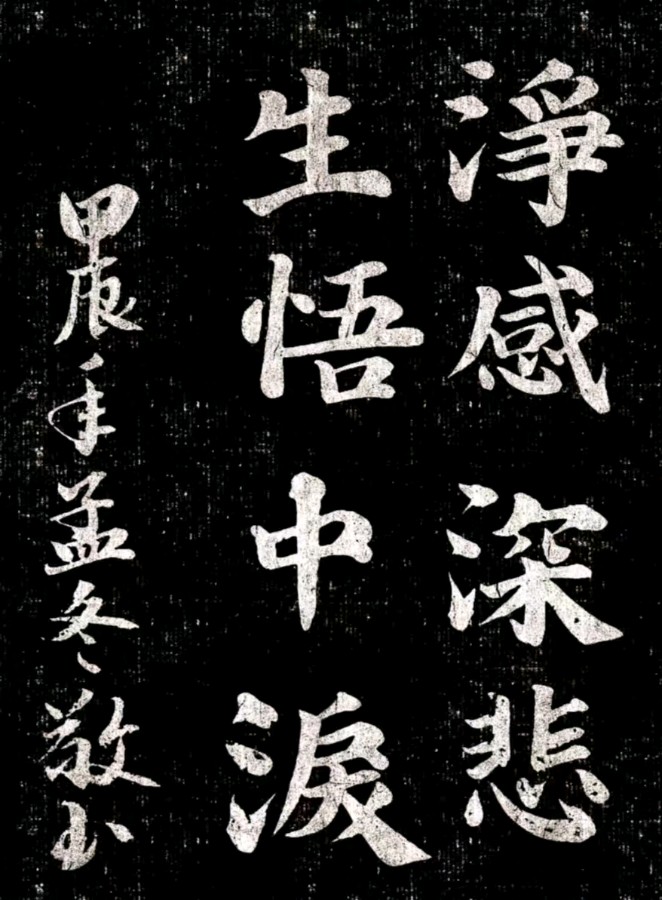 淨感深悲
生悟中淚
甲辰年孟冬敬书